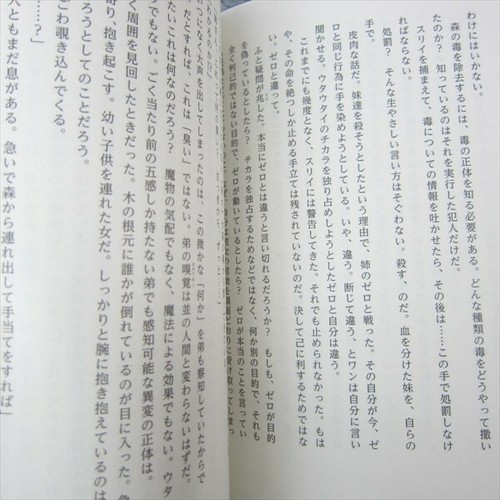 わけにはいかない。
森の毒を除去するには、毒の正体を知る必要がある。どんな種類の毒をどうやって撒い
たのか？　知っているのはそれを実行した犯人だけだ。
スリイを捕まえて、毒についての情報を吐かせたら、その後は……この手で処罰しなけ
ればならない。
処罰？　そんな生やさしい言い方はそぐわない。殺す、のだ。血を分けた妹を、自らの
手で。
皮肉な話だ。妹達を殺そうとしたという理由で、姉のゼロと戦った。その自分が今、ゼ
ロと同じ行為に手を染めようとしている。いや、違う。断じて違う、とワンは自分に言い
聞かせる。ウタウタイのチカラを独り占めしようとしたゼロと自分は違う。
これまでにも幾度となく、スリイには警告してきた。それでも止められなかった。もは
や、その命を絶つしか止める手立ては残されていないのだ。決して己に利するためではな
い。ゼロと違って。
ふと疑問が兆した。本当にゼロとは違うと言い切れるだろうか？　もしも、ゼロが目的
を偽っているとしたら？　チカラを独占するためなどではなく、何か別の目的で、それも
全く利己的ではない目的で、ゼロが動いているとしたら？　ゼロが本当のことを言って
どおりに受け取ってしまっ
大声を出してしまったのは、この微かな「何か」を弟も感知していたからで
だとすれば、これは「臭い」ではない。弟の嗅覚は並の人間と変わらないはずだ。
たいこれは何なのだろう？　魔物の気配でもなく、魔法による効果でもない。ウタ
ない。ごく当たり前の五感しか持たない弟でも感知可能な異変の正体は。
く周囲を見回したときだった。木の根元に誰かが倒れているのが目に入った。急
寄り、抱き起こす。幼い子供を連れた女だ。しっかりと腕に抱き抱えているのは
ろうとしてのことだろう。
ごわ覗き込んでくる。
…？」
人ともまだ息がある。急いで森から連れ出して手当てをすれば」